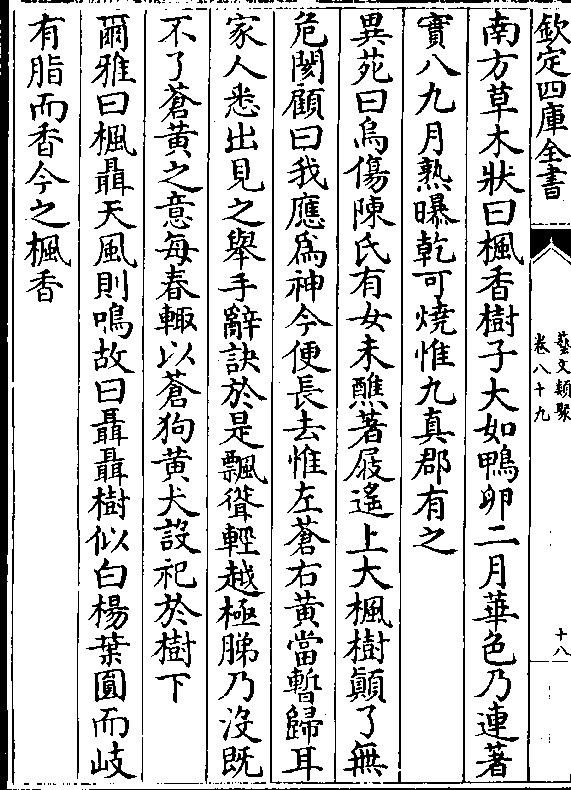 欽定四庫全書
藝文類聚
卷八十九
十八
南方草木狀曰楓香樹子大如鴨卵二月華色乃連著
實八九月熟曝乾可燒惟九真郡有之
異苑曰烏傷陳氏有女未醮著屐遙上大楓樹顛了無
危閡顧曰我應為神今便長去惟左蒼右黃當暫歸耳
家人悉出見之舉手辭訣於是飄聳輕越極睇乃沒既
不了蒼黃之意每春輙以蒼狗黃犬設祀於樹下
爾雅曰楓聶天風則鳴故曰聶聶樹似白楊葉圓而岐
有脂而香今之楓香